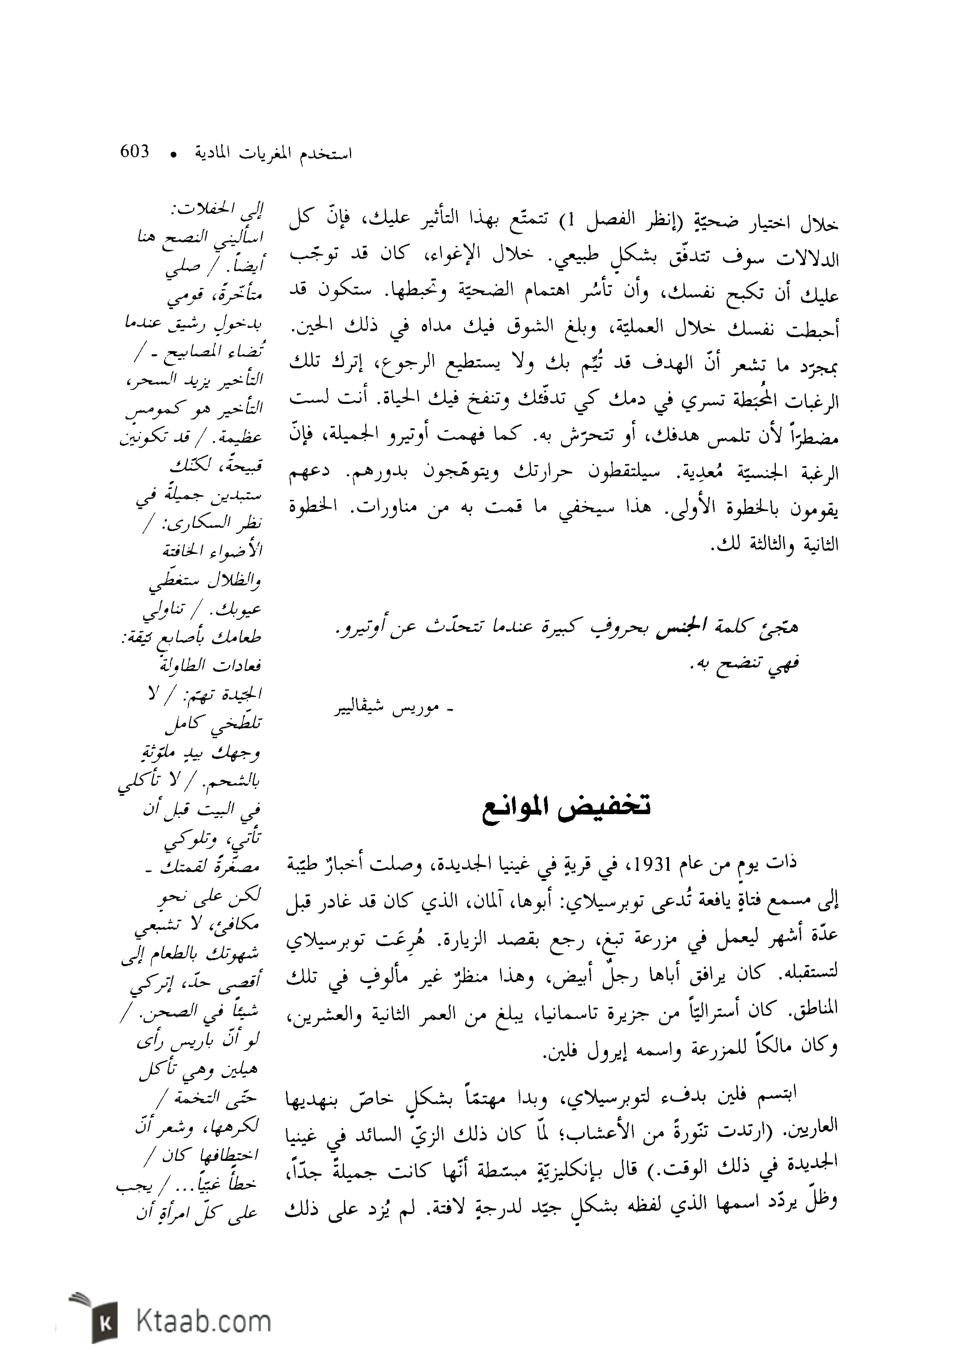 استخدم المغريات المادية • 603
خلال اختيار ضحيّةٍ (إنظر الفصل 1) تتمتّع بهذا التأثير عليك، فإنّ كل
الدلالات سوف تتدفّق بشكلٍ طبيعي. خلال الإغواء، كان قد توجّب
عليك أن تكبح نفسك، وأن تأسُر اهتمام الضحيّة وتحبطها. ستكون قد
أحبطت نفسك خلال العمليّة، وبلغ الشوق فيك مداه في ذلك الحين.
بمجرّد ما تشعر أنّ الهدف قد تُيِّم بك ولا يستطيع الرجوع، إترك تلك
الرغبات المُحبَطة تسري في دمك كي تدفّئك وتنفخ فيك الحياة. أنت لست
مضطرّاً لأن تلمس هدفك، أو تتحرّش به. كما فهمت أوتيرو الجميلة، فإنّ
الرغبة الجنسيّة مُعدِية. سيلتقطون حرارتك ويتوهّجون بدورهم. دعهم
يقومون بالخطوة الأولى. هذا سيخفي ما قمت به من مناورات. الخطوة
الثانية والثالثة لك.
هجّئ كلمة الجنس بحروفٍ كبيرة عندما تتحدّث عن أوتيرو.
فهي تنضح به.
ـ موريس شيڤاليير
تخفيض الموانع
ذات يومٍ من عام 1931، في قريةٍ في غينيا الجديدة، وصلت أخبارٌ طيّبة
إلى مسمع فتاةٍ يافعة تُدعى توبرسيلاي: أبوها، آلمان، الذي كان قد غادر قبل
عدّة أشهر ليعمل في مزرعة تبغ، رجع بقصد الزيارة. هُرِعَت توبرسيلاي
لتستقبله. كان يرافق أباها رجلٌ أبيض، وهذا منظرٌ غير مألوفٍ في تلك
المناطق. كان أستراليّاً من جزيرة تاسمانيا، يبلغ من العمر الثانية والعشرين،
وكان مالكاً للمزرعة واسمه إيرول فلين.
ابتسم فلين بدفء لتوبرسيلاي، وبدا مهتمّاً بشكلٍ خاصّ بنهديها
العاريين. (ارتدت تنّورةً من الأعشاب؛ لمّا كان ذلك الزيّ السائد في غينيا
الجديدة في ذلك الوقت.) قال بإنكليزيّةٍ مبسّطة أنّها كانت جميلةً جدّاً،
وظلّ يردّد اسمها الذي لفظه بشكلٍ جيّد لدرجةٍ لافتة. لم يُزد على ذلك
إلى الحفلات:
اسأليني النصح هنا
أيضاً. / صلي
متأخّرةً، قومي
بدخولٍ رشيق عندما
تُضاء المصابيح ـ /
التأخير يزيد السحر،
التأخير هو كمومسٍ
عظيمة. / قد تكونين
قبيحةً، لكنّك
ستبدين جميلةً في
نظر السكارى: /
الأضواء الخافتة
والظلال ستغطّي
عيوبك. / تناولي
طعامك بأصابع نيّقة:
فعادات الطاولة
الجيّدة تهمّ: / لا
تلطّخي كامل
وجهك بيدٍ ملوّثةٍ
بالشحم. / لا تأكلي
في البيت قبل أن
تأتي، وتلوكي
مصغّرةً لقمتك ـ
لكن على نحوٍ
مكافئ، لا تشبعي
شهوتك بالطعام إلى
أقصى حدّ، إتركي
شيئاً في الصحن. /
لو أنّ باريس رأى
هيلين وهي تأكل
حتّى التخمة /
لكرهها، وشعر أنّ
اختطافها كان /
خطأً غبيّاً... / يجب
على كلّ امرأةٍ أن
Ktaab.com